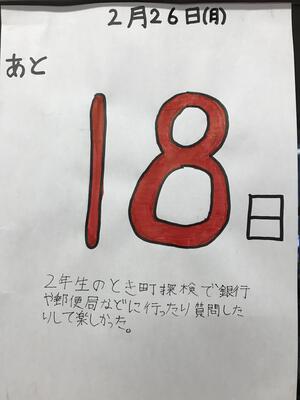 2月26日(月)
あと
18
日
2年生のとき町探検で銀行
や郵便局などに行ったり質問した
りして楽しかった。